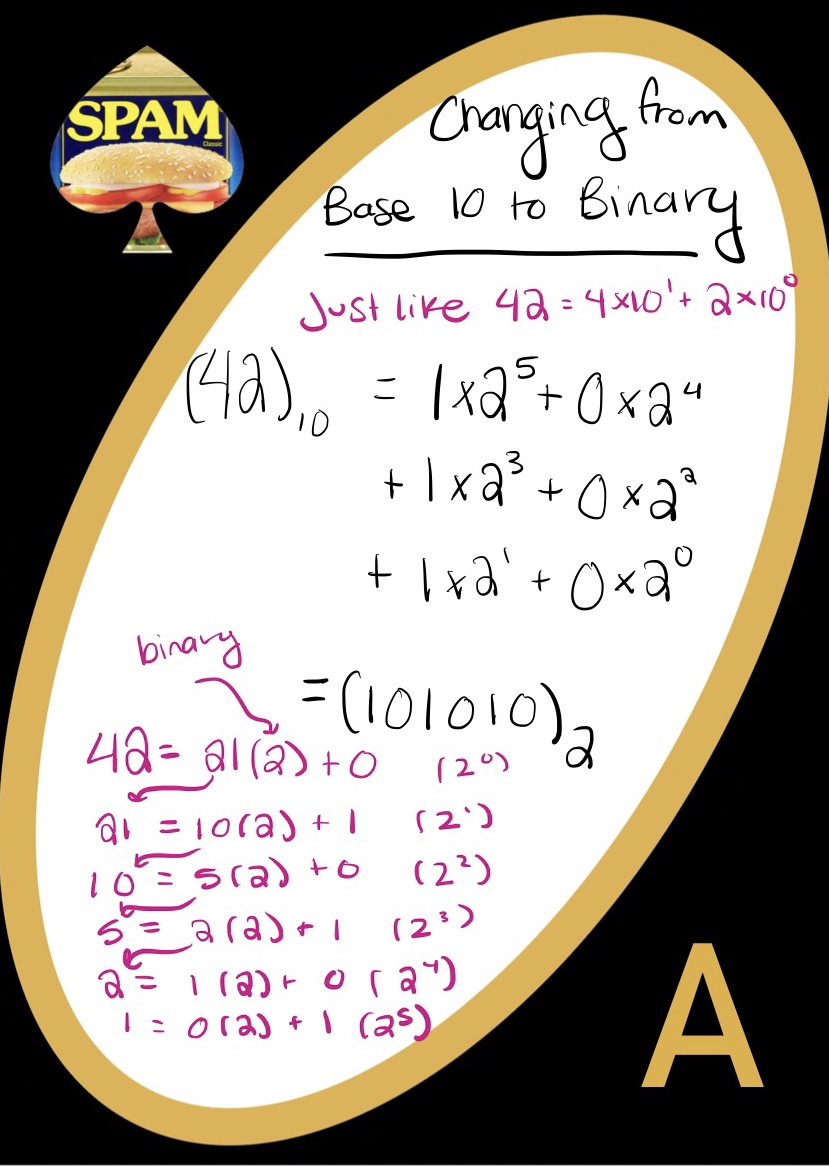 SPAM
Classic
Changing from
Base 10 to Binary
Just like 42 = 4×10¹ + 2×10⁰
(42)₁₀ = 1×2⁵ + 0×2⁴
+ 1×2³ + 0×2²
+ 1×2¹ + 0×2⁰
binary
= (101010)₂
42 = 21(2) + 0 (2⁰)
21 = 10(2) + 1 (2¹)
10 = 5(2) + 0 (2²)
5 = 2(2) + 1 (2³)
2 = 1(2) + 0 (2⁴)
1 = 0(2) + 1 (2⁵)
A